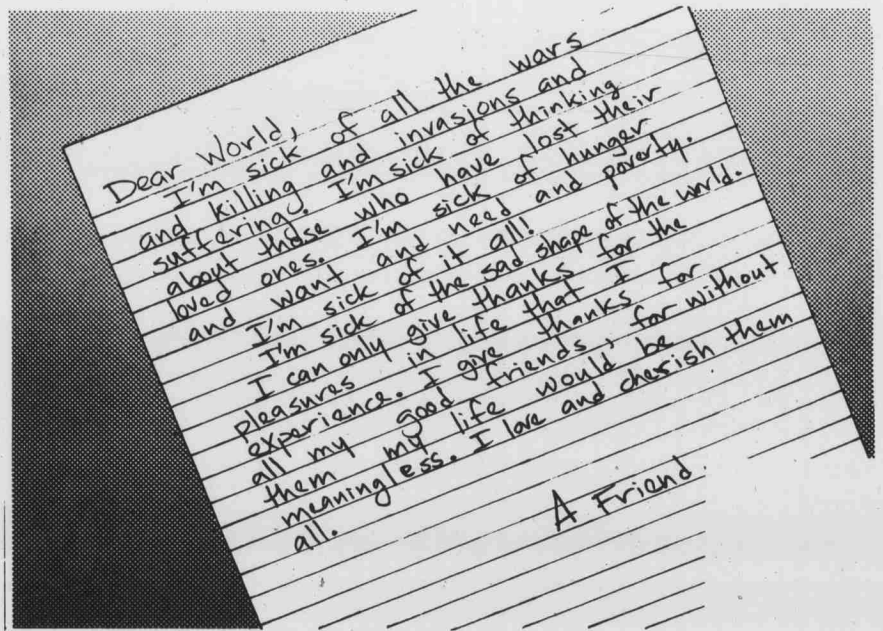 Dear World,
I'm sick of all the wars
and killing and invasions and
suffering. I'm sick of thinking
about those who have lost their
loved ones. I'm sick of hunger
and want and need and poverty.
I'm sick of it all!
I'm sick of the sad shape of the world.
I can only give thanks for the
pleasures in life that I
experience. I give thanks for
all my good friends, for without
them my life would be
meaningless. I love and cherish them
all.
A Friend.